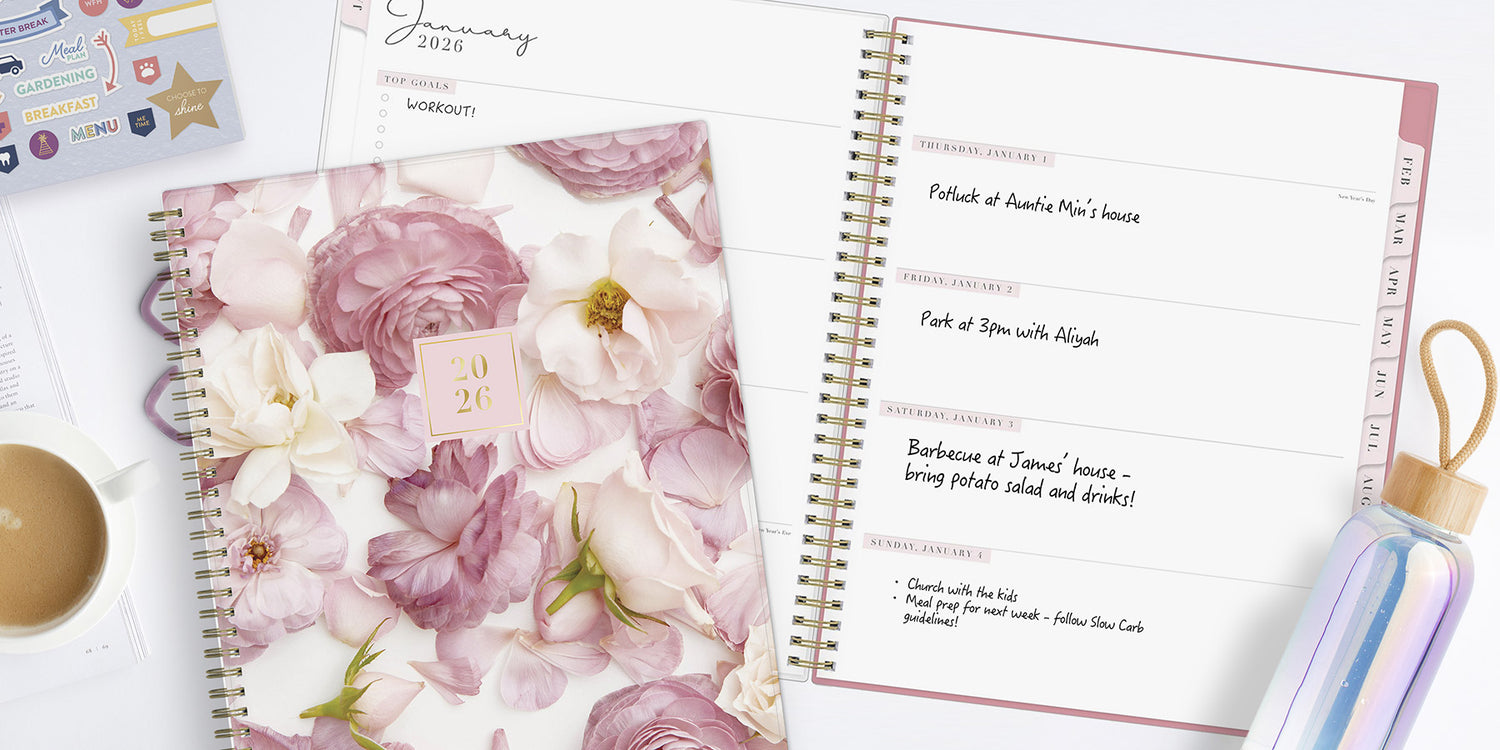 TER BREAK
WFH
TODAY I FEEL
Meal
PLAN
GARDENING
BREAKFAST
MENU
ME
TIME
CHOOSE TO
shine
January
2026
TOP GOALS
WORKOUT!
20
26
New Year's Eve
THURSDAY, JANUARY 1
New Year's Day
Potluck at Auntie Min's house
FRIDAY, JANUARY 2
Park at 3pm with Aliyah
SATURDAY, JANUARY 3
Barbecue at James' house -
bring potato salad and drinks!
SUNDAY, JANUARY 4
• Church with the kids
• Meal prep for next week - follow Slow Carb
guidelines!
FEB
MAR
APR
MAY
JUN
JUL
AUG
68 | 69